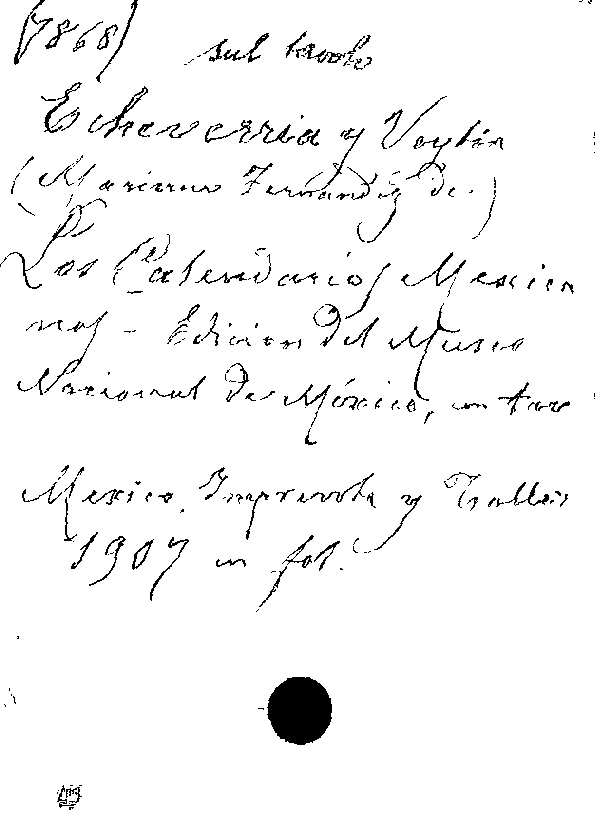 (7868) sul tavolo
Echeverria y Veytia
(Mariano Fernandez de.)
Los Calendarios Mexica
nos - Edicion del Museo
Nacional de México, con tav
Mexico, Imprenta y Taller
1907 in fol.